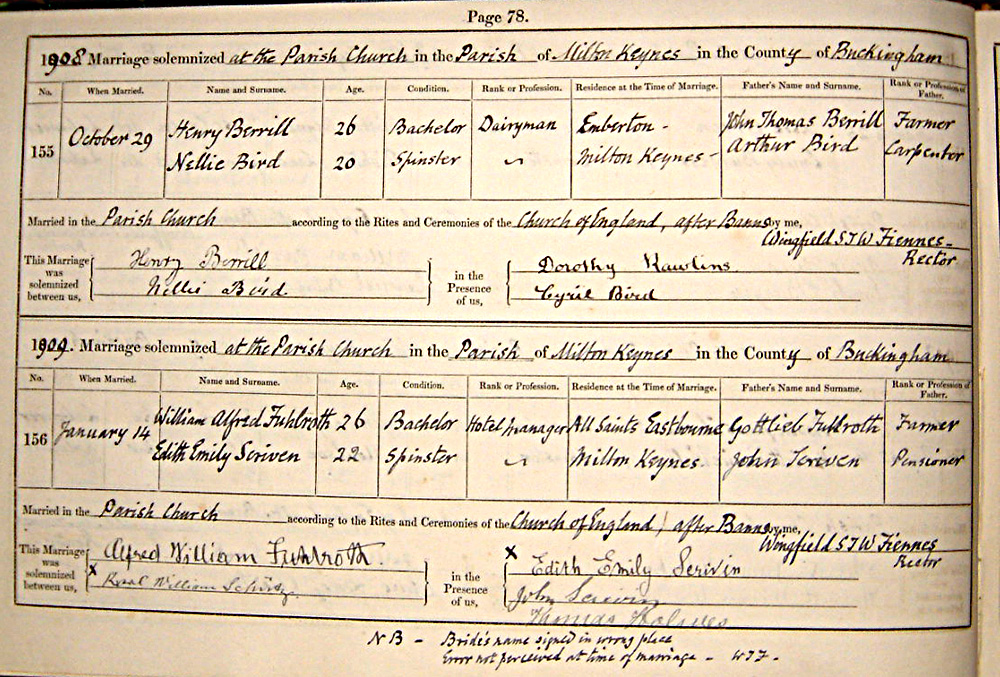 Page 78.
1908 Marriage solemnized at the Parish Church in the Parish of Milton Keynes in the County of Buckingham
No. When Married. Name and Surname. Age. Condition. Rank or Profession. Residence at the Time of Marriage. Father's Name and Surname. Rank or Profession of Father.
155 October 29 Henry Berrill 26 Bachelor Dairyman Emberton - John Thomas Berrill Farmer
Nellie Bird 20 Spinster Milton Keynes - Arthur Bird Carpenter
Married in the Parish Church according to the Rites and Ceremonies of the Church of England, after Banns by me,
Wingfield S T W Fiennes -
Rector
This Marriage was solemnized between us, Henry Berrill in the Presence of us, Dorothy Rawlins.
Nellie Bird. Cyril Bird
1909. Marriage solemnized at the Parish Church in the Parish of Milton Keynes in the County of Buckingham
No. When Married. Name and Surname. Age. Condition. Rank or Profession. Residence at the Time of Marriage. Father's Name and Surname. Rank or Profession of Father.
156 January 14 William Alfred Fuhlroth 26 Bachelor Hotel manager All Saints Eastbourne Gottlieb Fuhlroth Farmer
Edith Emily Scriven 22 Spinster Milton Keynes John Scriven Pensioner
Married in the Parish Church according to the Rites and Ceremonies of the Church of England, after Banns by me,
Wingfield S T W Fiennes
Rector
This Marriage was solemnized between us, Alfred William Fuhlroth. in the Presence of us, x Edith Emily Scriven
x William John Scriven
Thomas
NB - Bride's name signed in wrong place
Error not perceived at time of marriage - WTF -